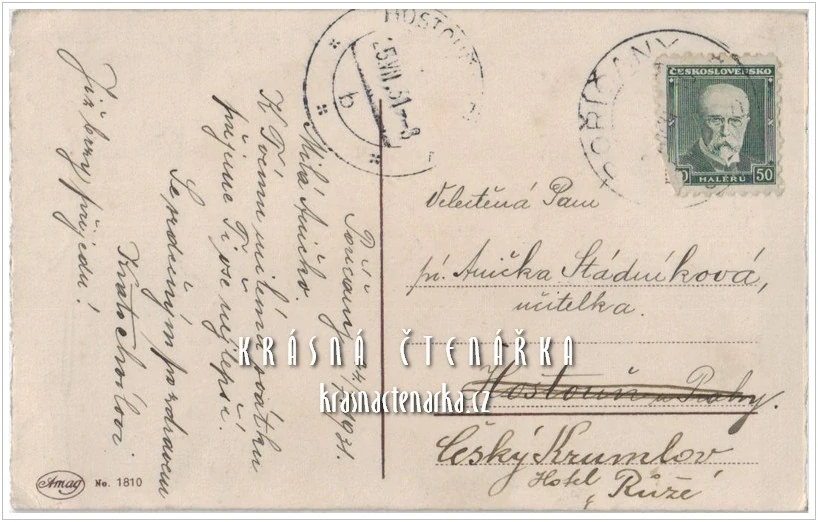 HOSTOUŇ
25.VII.31-8
b
POŘÍČANY
ČESKOSLOVENSKO
HALÉŘŮ 50
Poříčany 24/7 1931.
Milá Aničko.
K Tvému milému svátku
přejeme Ti vše nejlepší.
Se srdečným pozdravem
Kratochvílovi
Již brzy přijedu!
Velectěná Paní
pí. Anička Stádníková,
učitelka.
Hostouň u Prahy.
Český Krumlov
Hotel "Růže"
KRÁSNÁ ČTENÁŘKA
krasnactenarka.cz
Amag No. 1810